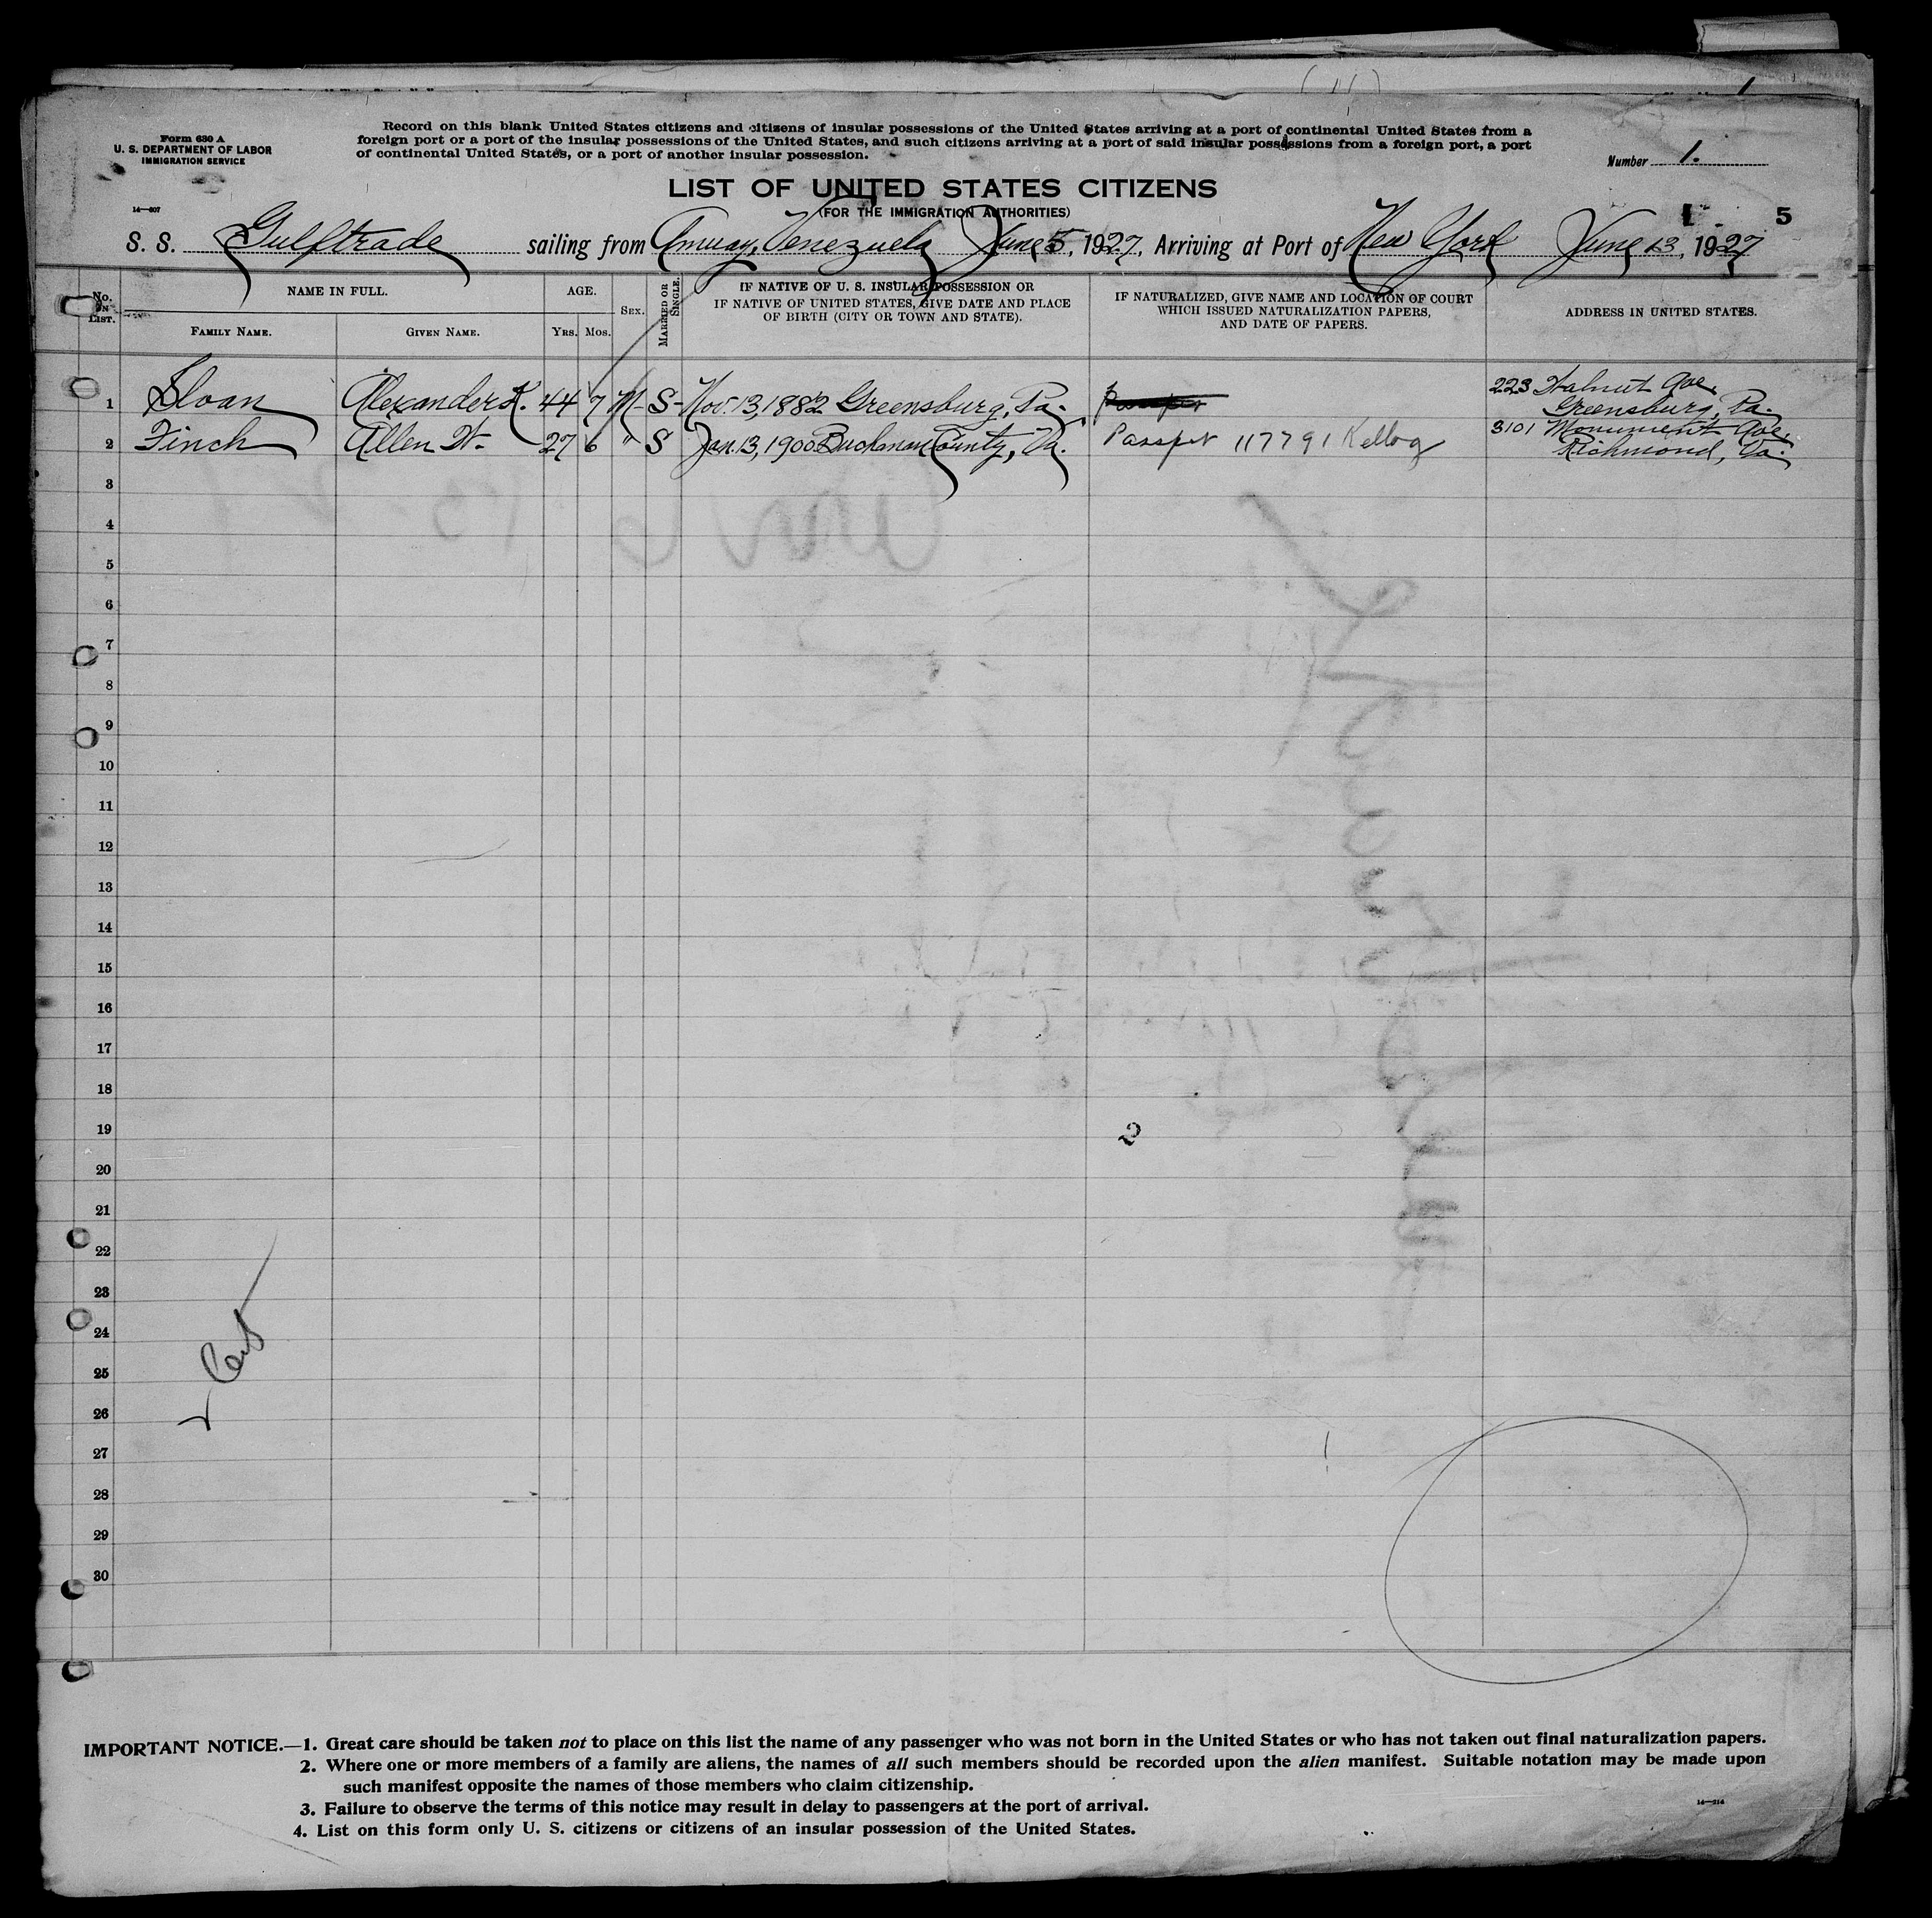 Form 630 A
U. S. DEPARTMENT OF LABOR
IMMIGRATION SERVICE
14—807
Record on this blank United States citizens and citizens of insular possessions of the United States arriving at a port of continental United States from a
foreign port or a port of the insular possessions of the United States, and such citizens arriving at a port of said insular possessions from a foreign port, a port
of continental United States, or a port of another insular possession.
Number 1.
LIST OF UNITED STATES CITIZENS
(FOR THE IMMIGRATION AUTHORITIES)
1 5
S. S. Gulftrade sailing from Amuay, Venezuela June 5, 1927, Arriving at Port of New York June 13, 1927
No. IN LIST.
NAME IN FULL.
FAMILY NAME. GIVEN NAME.
AGE.
Yrs. Mos.
SEX.
MARRIED OR SINGLE.
IF NATIVE OF U. S. INSULAR POSSESSION OR
IF NATIVE OF UNITED STATES, GIVE DATE AND PLACE
OF BIRTH (CITY OR TOWN AND STATE).
IF NATURALIZED, GIVE NAME AND LOCATION OF COURT
WHICH ISSUED NATURALIZATION PAPERS,
AND DATE OF PAPERS.
ADDRESS IN UNITED STATES.
1 Sloan Alexander K. 44 7 M- S- Nov. 13, 1882 Greensburg, Pa. 223 Walnut Ave,
Greensburg, Pa.
2 Finch Allen W. 27 6 " S Jan. 13, 1900 Buchanan County, Va. Passpt 117791 Kellog 3101 Monument Ave,
Richmond, Va.
3
4
5
6
7
8
9
10
11
12
13
14
15
16
17
18
19 2
20
21
22
23
24
25
26
27
28
29
30
IMPORTANT NOTICE.—1. Great care should be taken not to place on this list the name of any passenger who was not born in the United States or who has not taken out final naturalization papers.
2. Where one or more members of a family are aliens, the names of all such members should be recorded upon the alien manifest. Suitable notation may be made upon
such manifest opposite the names of those members who claim citizenship.
3. Failure to observe the terms of this notice may result in delay to passengers at the port of arrival.
4. List on this form only U. S. citizens or citizens of an insular possession of the United States.
14—214